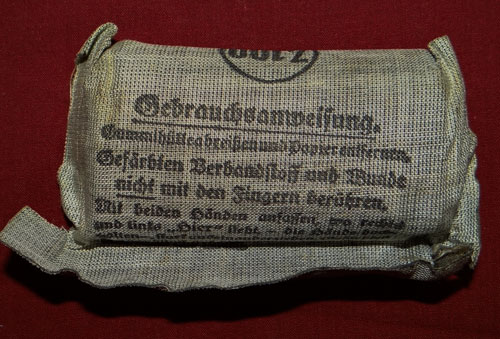 Gebrauchsanweisung.
Gummihülle abreißen und Papier entfernen.
Gefärbten Verbandstoff und Wunde
nicht mit den Fingern berühren.
Mit beiden Händen anfassen, wo rechts
und links „Hier" steht – die Hände